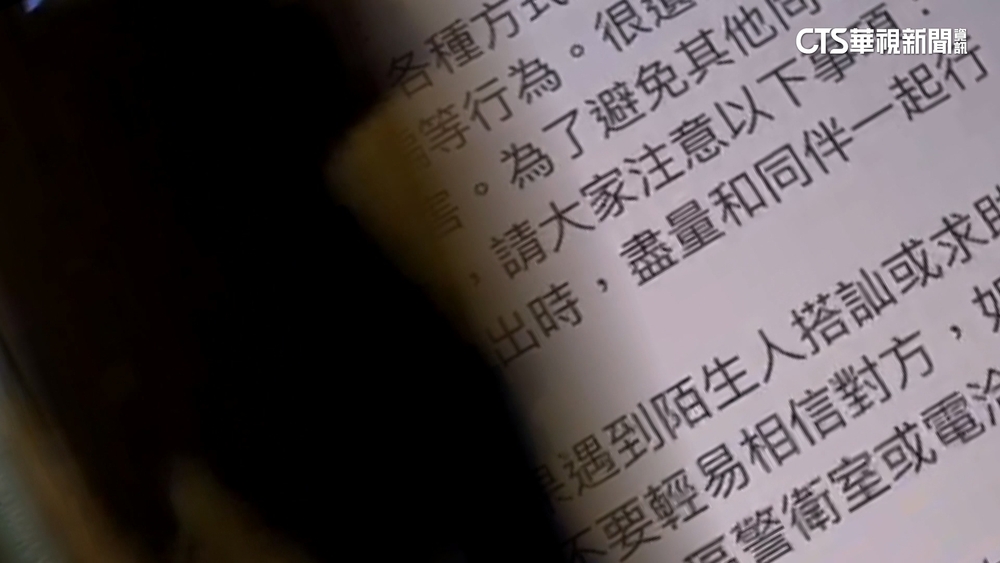 CTS華視新聞資訊
各種方式
等行為。很遺
害。為了避免其他同
，請大家注意以下事項：
出時，盡量和同伴一起行
果遇到陌生人搭訕或求助
不要輕易相信對方，如
區警衛室或電洽